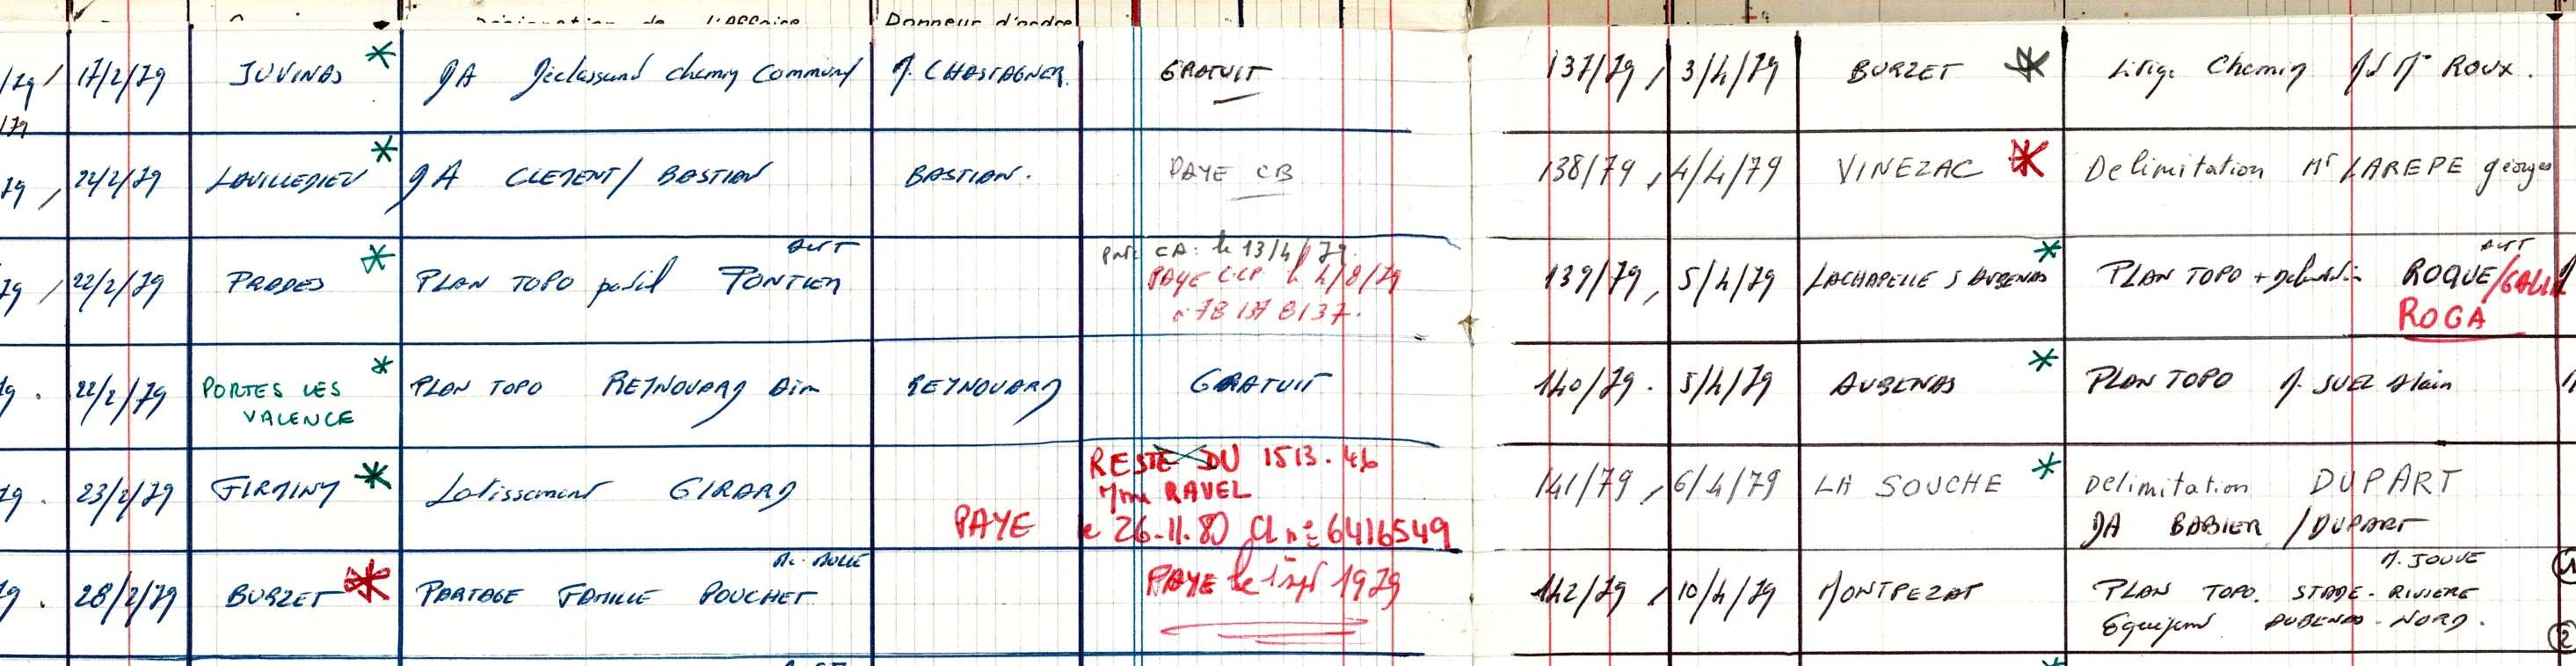 Donneur d'ordre
17/2/79 JUVINAS * DA Déclassement chemin communal M. CHASTAGNER. GRATUIT
/79
24/2/79 LAVILLEDIEU * DA CLEMENT / BASTIAN BASTIAN. PAYE CB
79 / 22/2/79 PRADES * PLAN TOPO PONTIER
CA: le 13/4/79.
PAYE CCP le 4/8/79
79 . 22/2/79 PORTES LES VALENCE * PLAN TOPO REYNOUARD REYNOUARD GRATUIT
79 . 23/2/79 FIRMINY * Lotissement GIRARD
RESTE DU 1513.46
Mme RAVEL
PAYE le 26.11.80 Cl n= 6416549
79 . 28/2/79 BURZET * PARTAGE FAMILLE POUCHET
PAYE le 1 1979
137/79 , 3/4/79 BURZET * Litige Chemin ROUX.
138/79 , 4/4/79 VINEZAC * Delimitation Mr LAREPE georges
139/79 , 5/4/79 LACHAPELLE S AUBENAS * PLAN TOPO + ROQUE/
ROGA
140/79 . 5/4/79 AUBENAS * PLAN TOPO M. SUEL Alain
141/79 , 6/4/79 LA SOUCHE * Delimitation DUPART
DA BABIER / DUPART
M. JOUVE
142/79 , 10/4/79 MONTPEZAT PLAN TOPO. STADE - RIVIERE
AUBENAS - NORD.